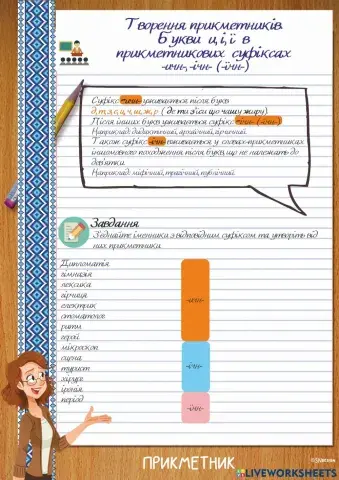 Творення прикметників.
Букви и, і, ї в
прикметникових суфіксах
-ичн-, -ічн- (-їчн-)
Суфікс -ичн- уживається після букв
д, т, з, с, ц, ч, ш, ж, р ( де ти з'їси цю чашу жиру).
Після інших букв уживається суфікс -ічн- (-їчн-)
Наприклад: дидактичний, архаїчний, гірничий.
Також суфікс -ічн- вживається у словах-прикметниках
іншомовного походження після букв, що не належать до
дев'ятки.
Наприклад: міфічний, трагічний, публічний.
Завдання.
З'єднайте іменники з відповідним суфіксом та утворіть від
них прикметники.
Дипломатія
гімназія
лексика
гірчиця
електрик
стоматолог
ритм
герой
мікроскоп
сцена
турист
хірург
іронія
період
-ичн-
-ічн-
-їчн-
ПРИКМЕТНИК
LIVEWORKSHEETS